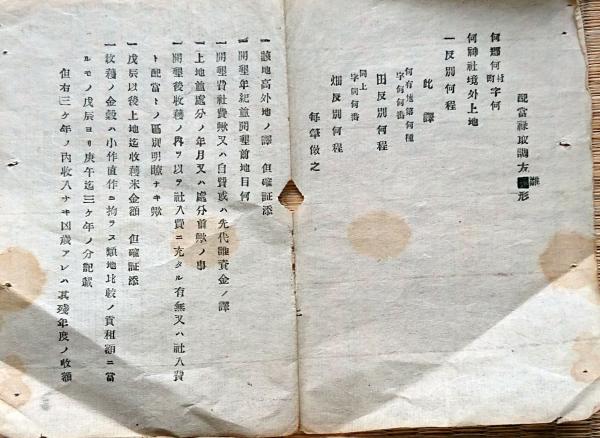 配当禄取調方雛形
何郷何村町字何
何神社境外上地
一反別何程
此譯
何有地第何種
字何何番
田反別何程
同上
字何何番
畑反別何程
毎筆倣之
一該地高外地ノ譯 但確証添
一開墾年紀並開墾前地目何
一開墾費社費歟又ハ自費或ハ先代誰資金ノ譯
一上地並處分ノ年月又ハ處分前歟ノ事
一開墾後收穫ノ内ヲ以テ社入費ニ充タル有無又ハ社入費
ト配當トノ區別明瞭ナキ歟
一戊辰以後上地迄收穫米金額 但確証添
一收穫ノ金穀ハ小作直作ニ拘ラス類地比較ノ貢租額ニ當
ルモノ戊辰ヨリ庚午迄三ケ年ノ分記載
但右三ケ年ノ内收入ナキ凶歳アレハ其残年度ノ收額